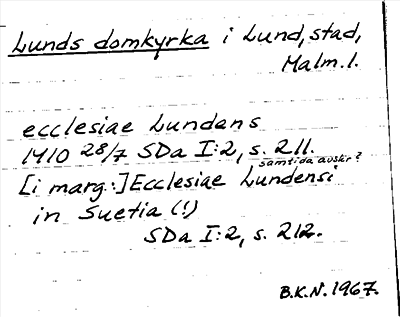 Lunds domkyrka i Lund, stad,
Malm. l.
ecclesiae Lundens
1410 28/7 SDa I:2, s. 211.
samtida avskr?
[i marg:] Ecclesiae Lundensi
in Suetia (!)
SDa I:2, s. 212.
B.K.N. 1967.